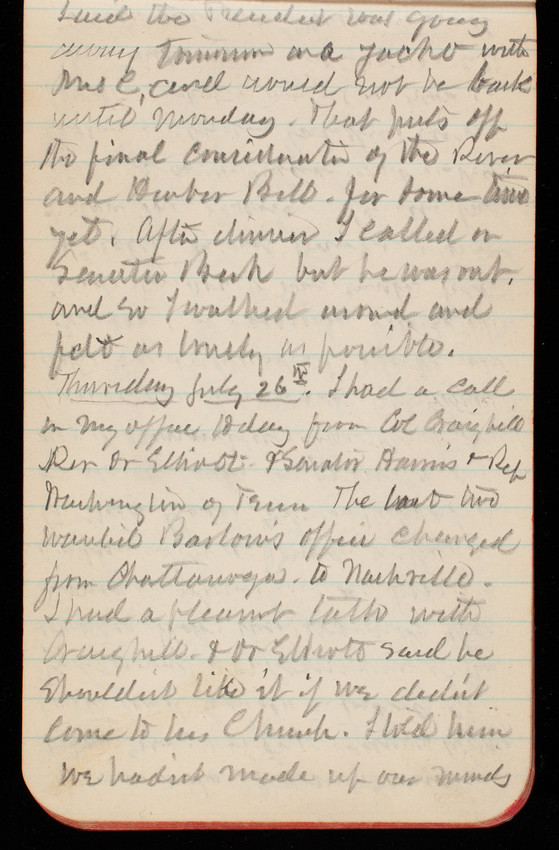 Said the President was going
away tomorrow on a yacht with
Mrs C, and would not be back
until Monday. That puts off
the final consideration of the River
and Harbor Bill. for some time
yet. After dinner I called on
Senator Beck but he was out.
and so I walked around and
felt as lonely as possible.
Thursday July 26th. I had a call
in my office today from Col Craighill
Rev Dr Elliott & Senator Harris & Rep
Washington of Tenn The last two
wanted Barlow's office changed
from Chattanooga. to Nashville.
I had a pleasant talk with
Craighill. & Dr Elliott said he
shouldnt like it if we didn't
come to his Church. I told him
we hadnt made up our minds